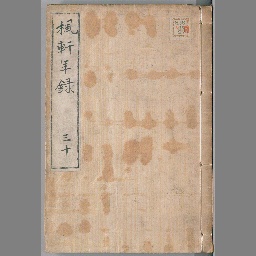 楓軒年録
三十